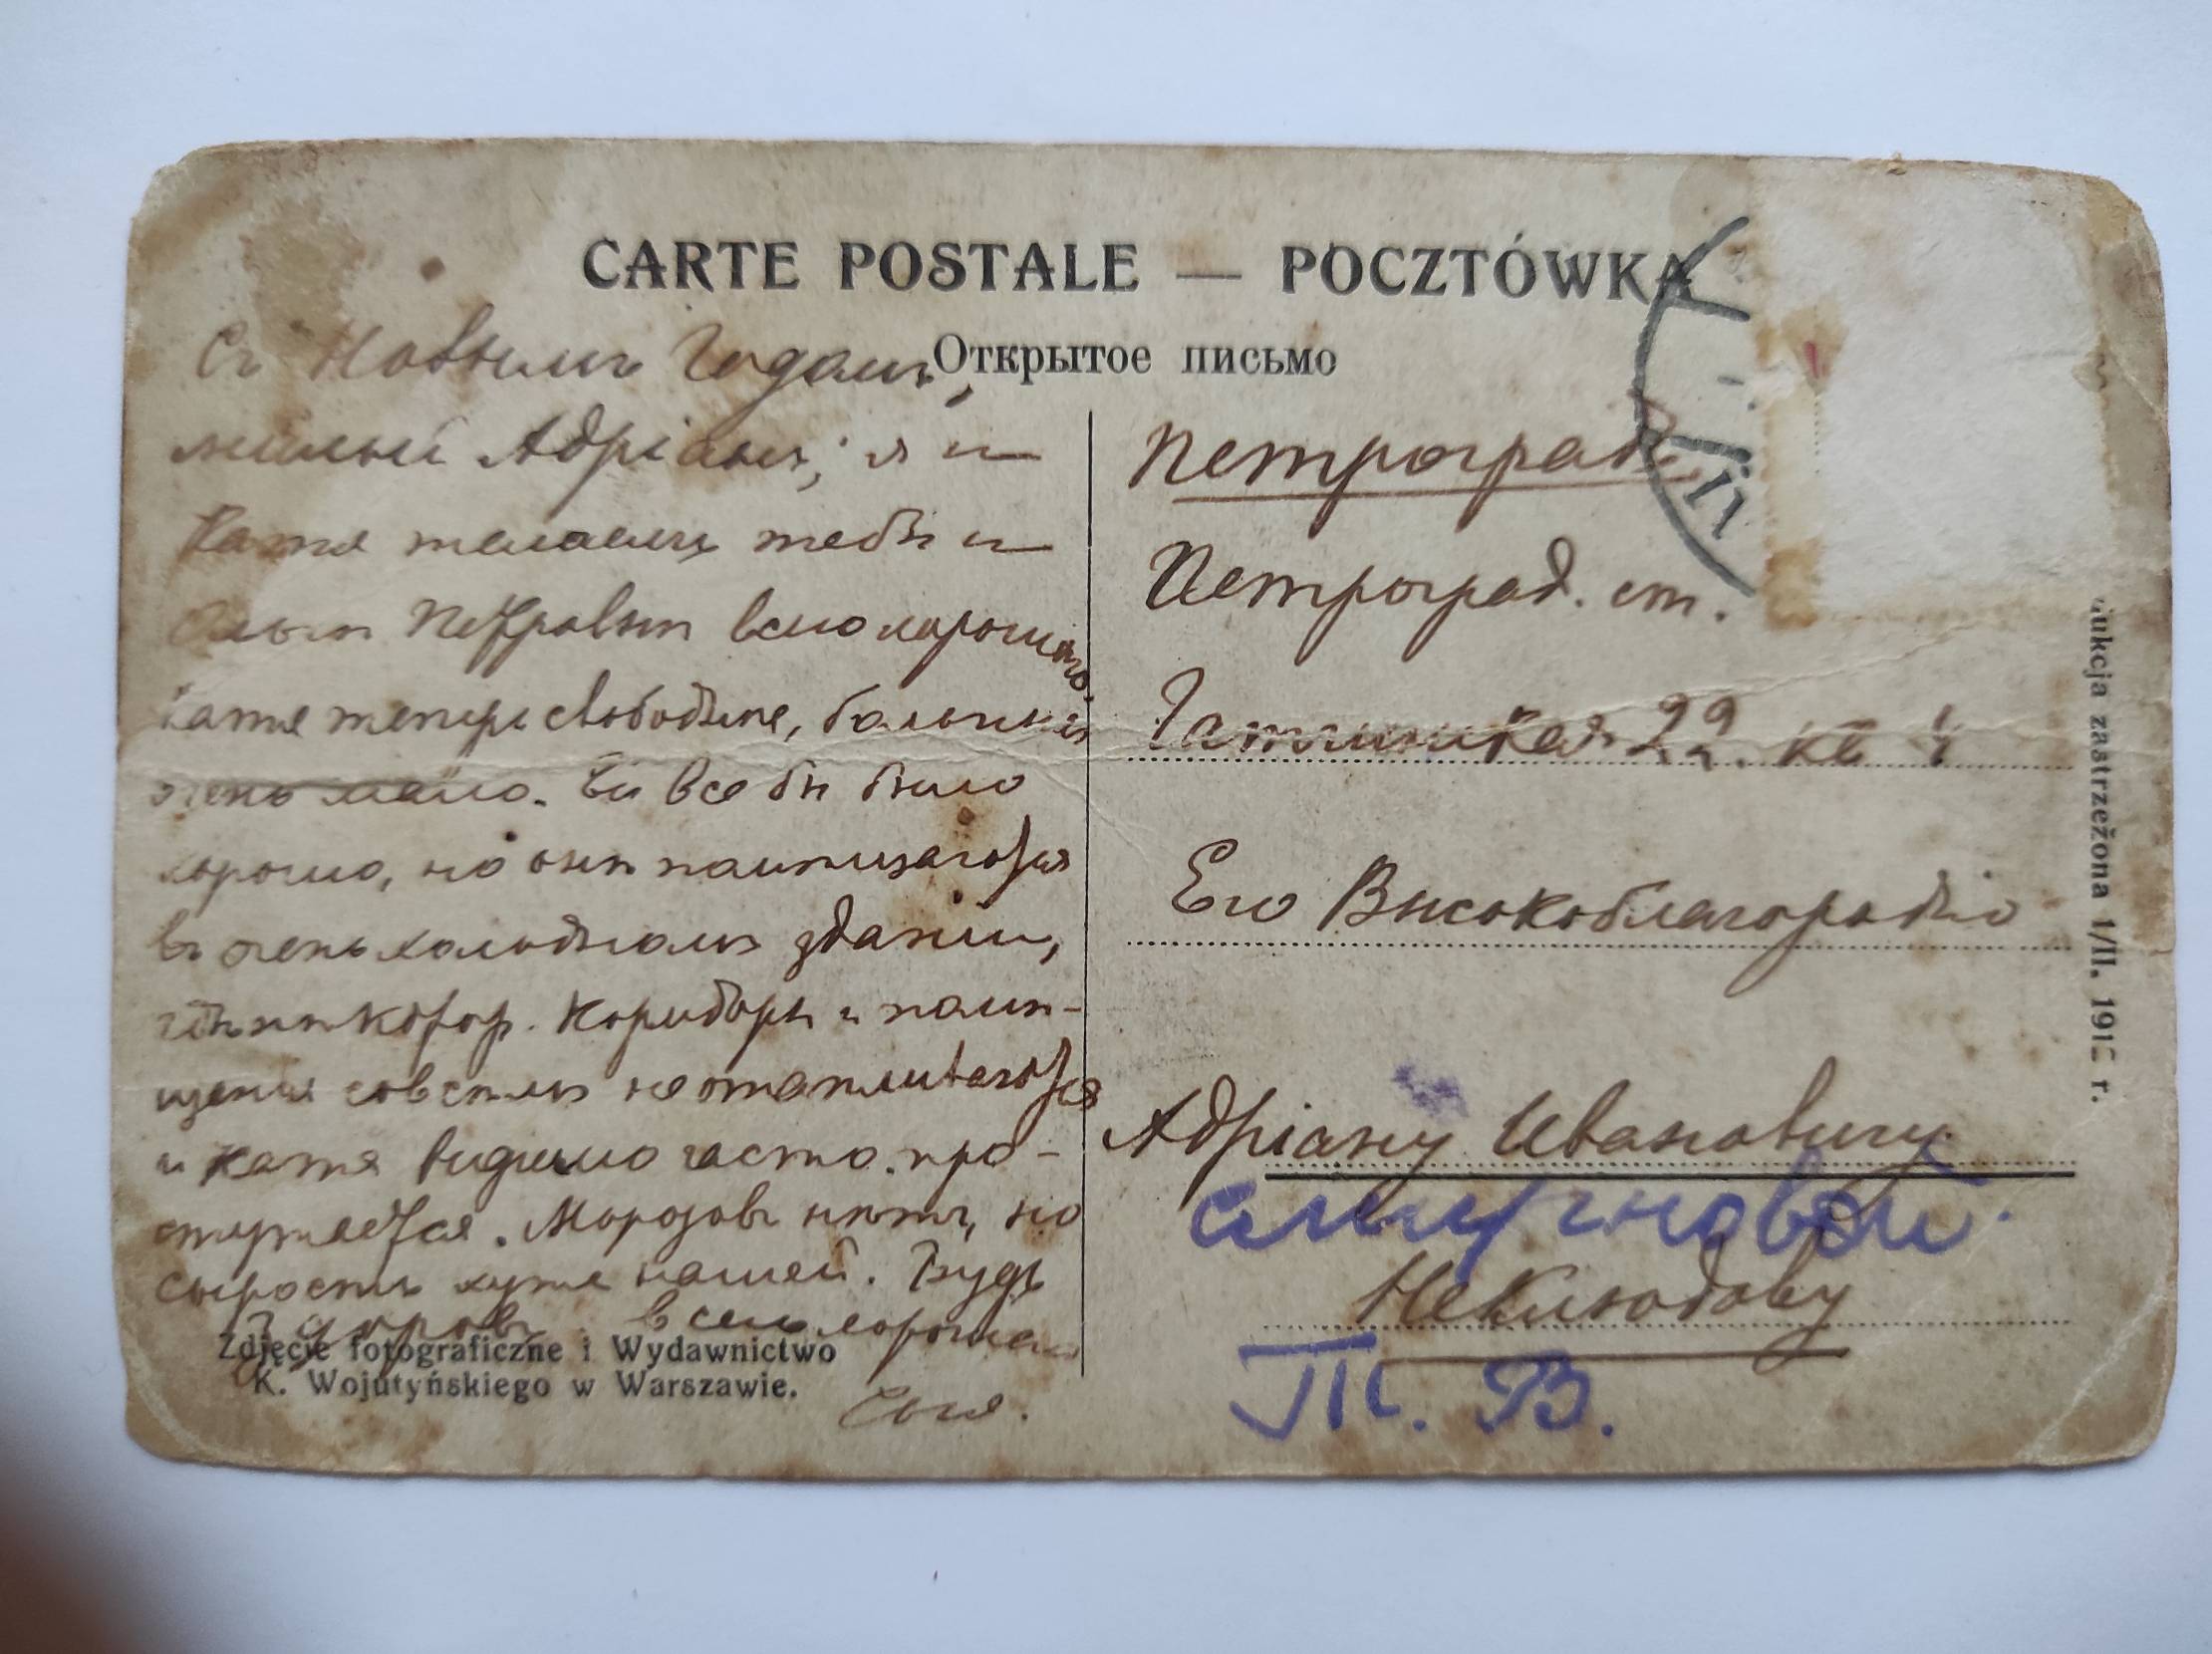 CARTE POSTALE — POCZTÓWKA
Открытое письмо
Съ Новымъ Годомъ,
милый Адріанъ; я и
Катя желаемъ тебѣ и
Петровнѣ всего хорошаго.
Катя теперь свободнѣе, больныхъ
очень мало. Ей все бы было
хорошо, но онѣ помѣщаются
въ очень холодномъ зданіи,
коридоры и помѣ-
щенія совсѣмъ не отапливаются
и Катя видимо часто про-
стужается. Морозовъ нѣтъ, но
сырость хуже нашей. Будь
здоровъ. Всего хорошаго
Zdjęcie fotograficzne i Wydawnictwo
K. Wojutyńskiego w Warszawie.
Петроградъ
Петроград. ст.
Гатчинская 22. кв
Его Высокоблагородію
Адріану Ивановичу
Неклюдову
П. В.
ukcja zastrzeżona 1/II. 191 r.